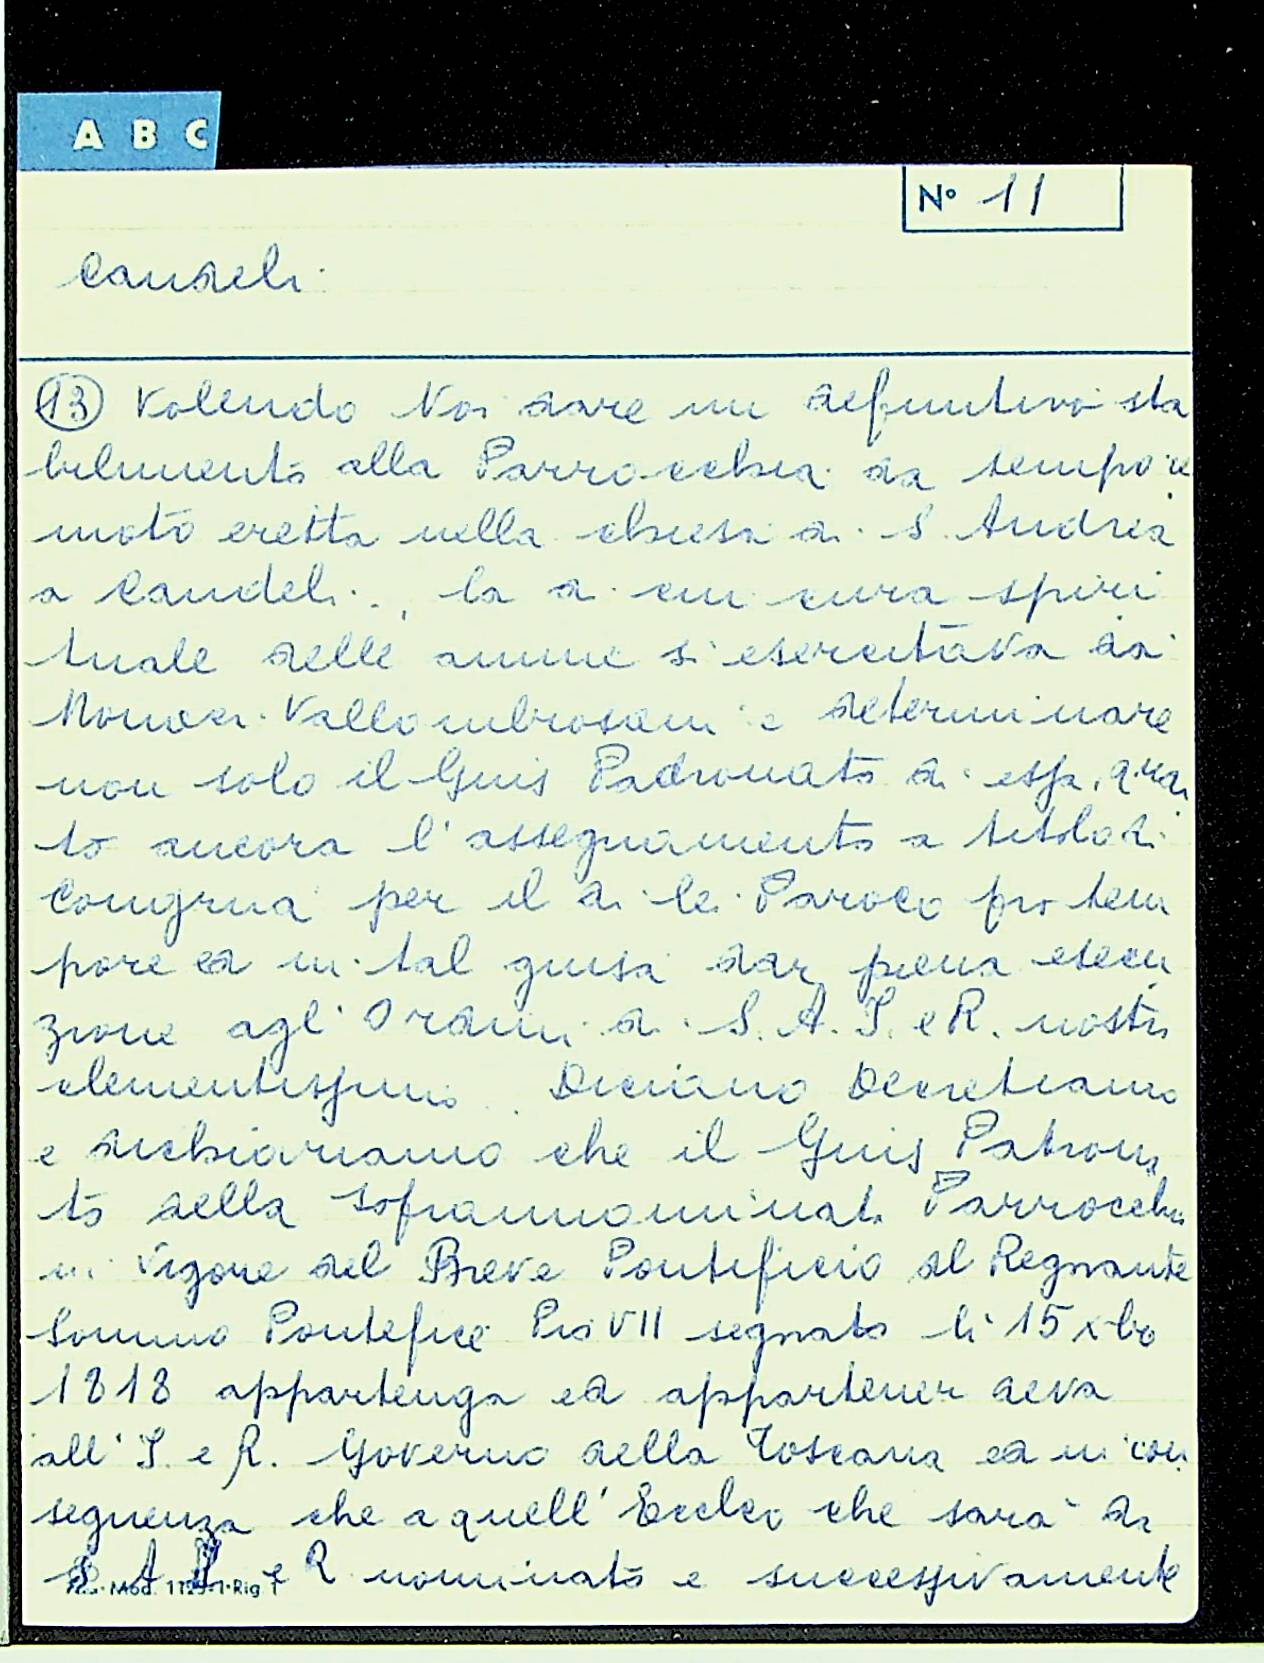 A B C
N° 11
Candeli.
(13) Volendo Noi dare un definitivo sta
bilimento alla Parrocchia da tempo re
moto eretta nella chiesa di S. Andrea
a Candeli, la di cui cura spiri
tuale delle anime si esercitava da
Monaci Vallombrosani e determinare
non solo il Gius Padronato di essa, quan
to ancora l'assegnamento a titolo di
Congrua per il di lei Paroco pro tem
pore ed in tal guisa dar piena esecu
zione agl'Ordini di S. A. I. e R. nostro
clementissimo. Diciamo Decretiamo
e dichiariamo che il Gius Patrona
to della soprannominata Parrocchia
in vigore del Breve Pontificio del Regnante
Sommo Pontefice Pio VII segnato li 15 xbre
1818 appartenga ed appartener deva
all'I. e R. Governo della Toscana ed in con
seguenza che a quell'Eccleo che sarà da
S A I e R nominato e successivamente
Mod. 1 Rig 1